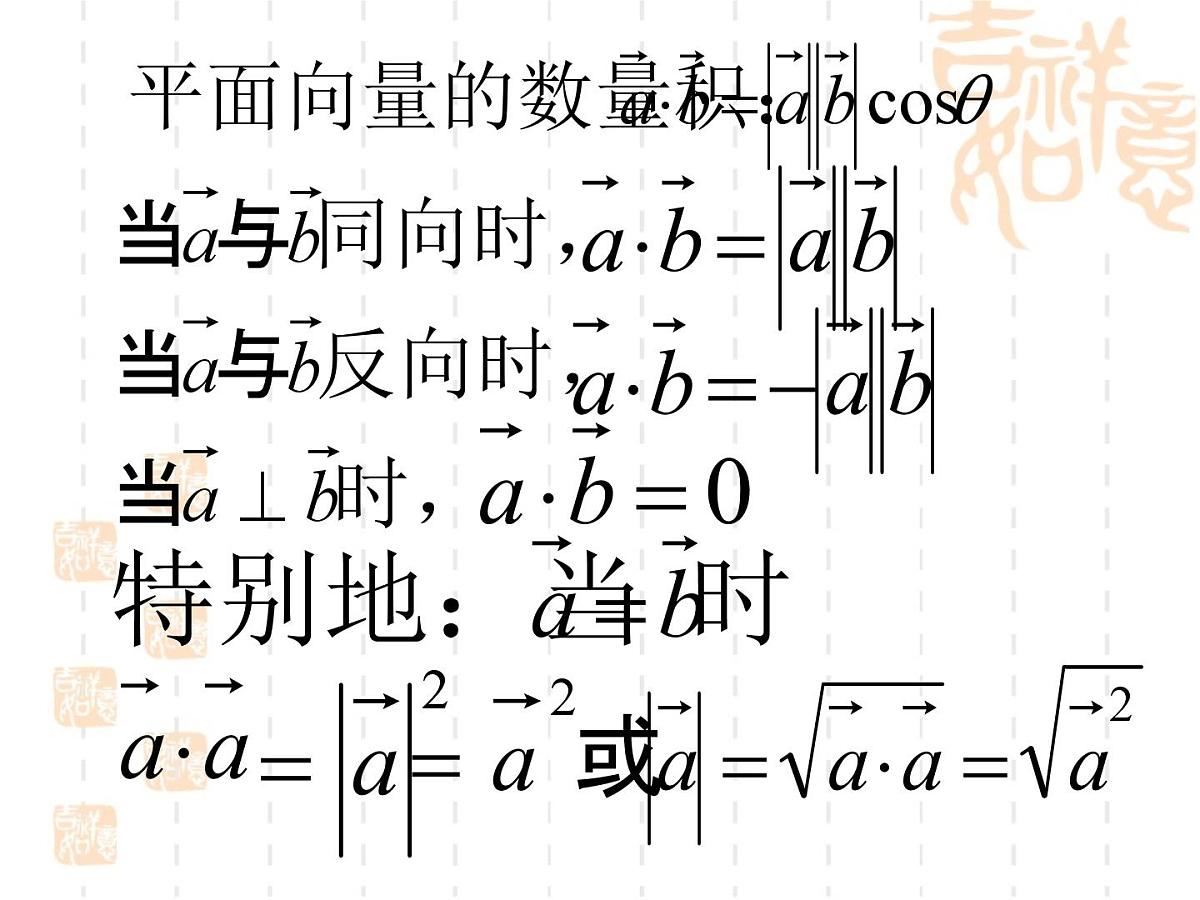 平面向量的数量积: $\vec{a}\cdot\vec{b}=|\vec{a}||\vec{b}|\cos\theta$
当$\vec{a}$与$\vec{b}$同向时,$\vec{a}\cdot\vec{b}=|\vec{a}||\vec{b}|$
当$\vec{a}$与$\vec{b}$反向时,$\vec{a}\cdot\vec{b}=-|\vec{a}||\vec{b}|$
当$\vec{a}\perp\vec{b}$时,$\vec{a}\cdot\vec{b}=0$
特别地:当$\vec{a}=\vec{b}$时
$\vec{a}\cdot\vec{a}=|\vec{a}|^2=\vec{a}^2$或$|\vec{a}|=\sqrt{\vec{a}\cdot\vec{a}}=\sqrt{\vec{a}^2}$
吉祥如意